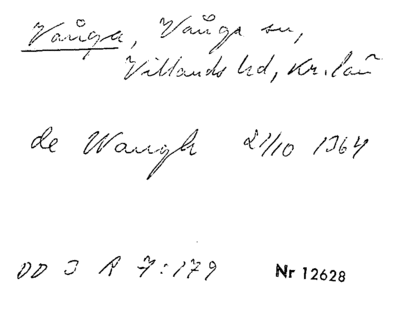 Vånga, Vånga sn,
Villands hd, Kr. län
de Waugh 21/10 1364
DD 3 R 7:179 Nr 12628